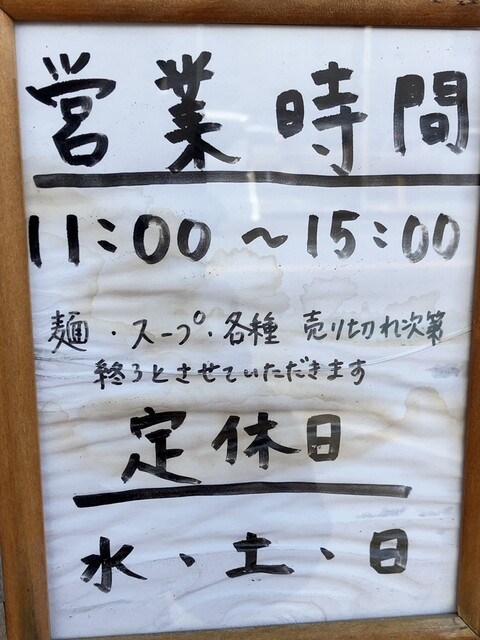 営業時間
11:00 ～ 15:00
麺・スープ・各種 売り切れ次第
終了とさせていただきます
定休日
水、土、日